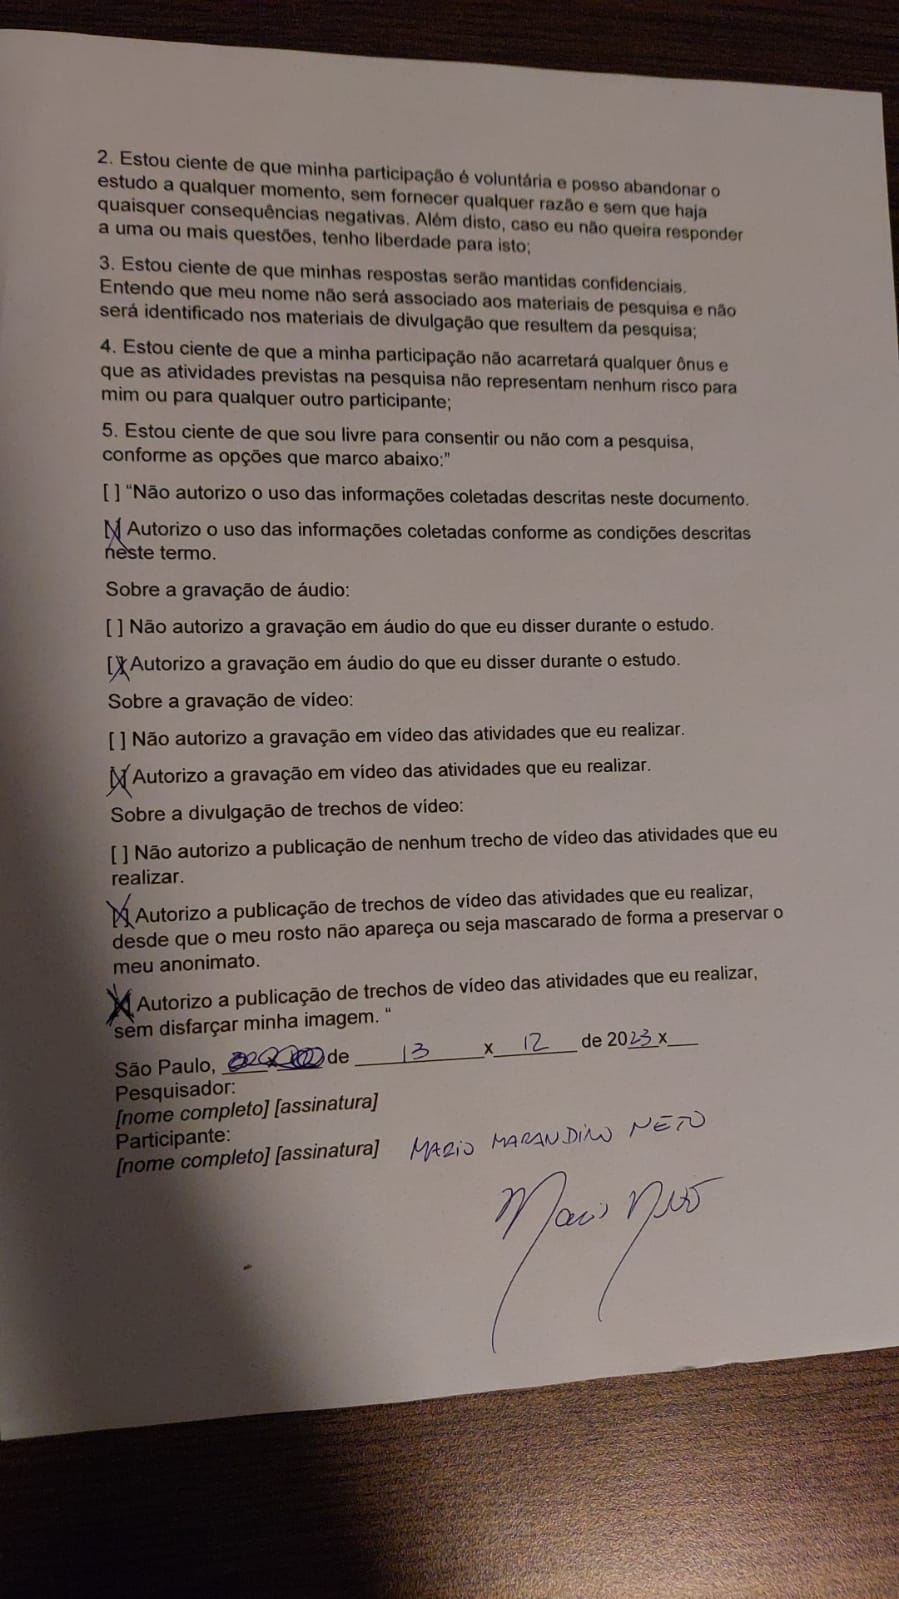 2. Estou ciente de que minha participação é voluntária e posso abandonar o
estudo a qualquer momento, sem fornecer qualquer razão e sem que haja
quaisquer consequências negativas. Além disto, caso eu não queira responder
a uma ou mais questões, tenho liberdade para isto;
3. Estou ciente de que minhas respostas serão mantidas confidenciais.
Entendo que meu nome não será associado aos materiais de pesquisa e não
será identificado nos materiais de divulgação que resultem da pesquisa;
4. Estou ciente de que a minha participação não acarretará qualquer ônus e
que as atividades previstas na pesquisa não representam nenhum risco para
mim ou para qualquer outro participante;
5. Estou ciente de que sou livre para consentir ou não com a pesquisa,
conforme as opções que marco abaixo:"
[ ] “Não autorizo o uso das informações coletadas descritas neste documento.
[X] Autorizo o uso das informações coletadas conforme as condições descritas
neste termo.
Sobre a gravação de áudio:
[ ] Não autorizo a gravação em áudio do que eu disser durante o estudo.
[X] Autorizo a gravação em áudio do que eu disser durante o estudo.
Sobre a gravação de vídeo:
[ ] Não autorizo a gravação em vídeo das atividades que eu realizar.
[X] Autorizo a gravação em vídeo das atividades que eu realizar.
Sobre a divulgação de trechos de vídeo:
[ ] Não autorizo a publicação de nenhum trecho de vídeo das atividades que eu
realizar.
[X] Autorizo a publicação de trechos de vídeo das atividades que eu realizar,
desde que o meu rosto não apareça ou seja mascarado de forma a preservar o
meu anonimato.
[X] Autorizo a publicação de trechos de vídeo das atividades que eu realizar,
sem disfarçar minha imagem. “
São Paulo, de 13 x 12 de 2023 x
Pesquisador:
[nome completo] [assinatura]
Participante:
[nome completo] [assinatura] MARIO MARANDINO NETO
Mario Neto